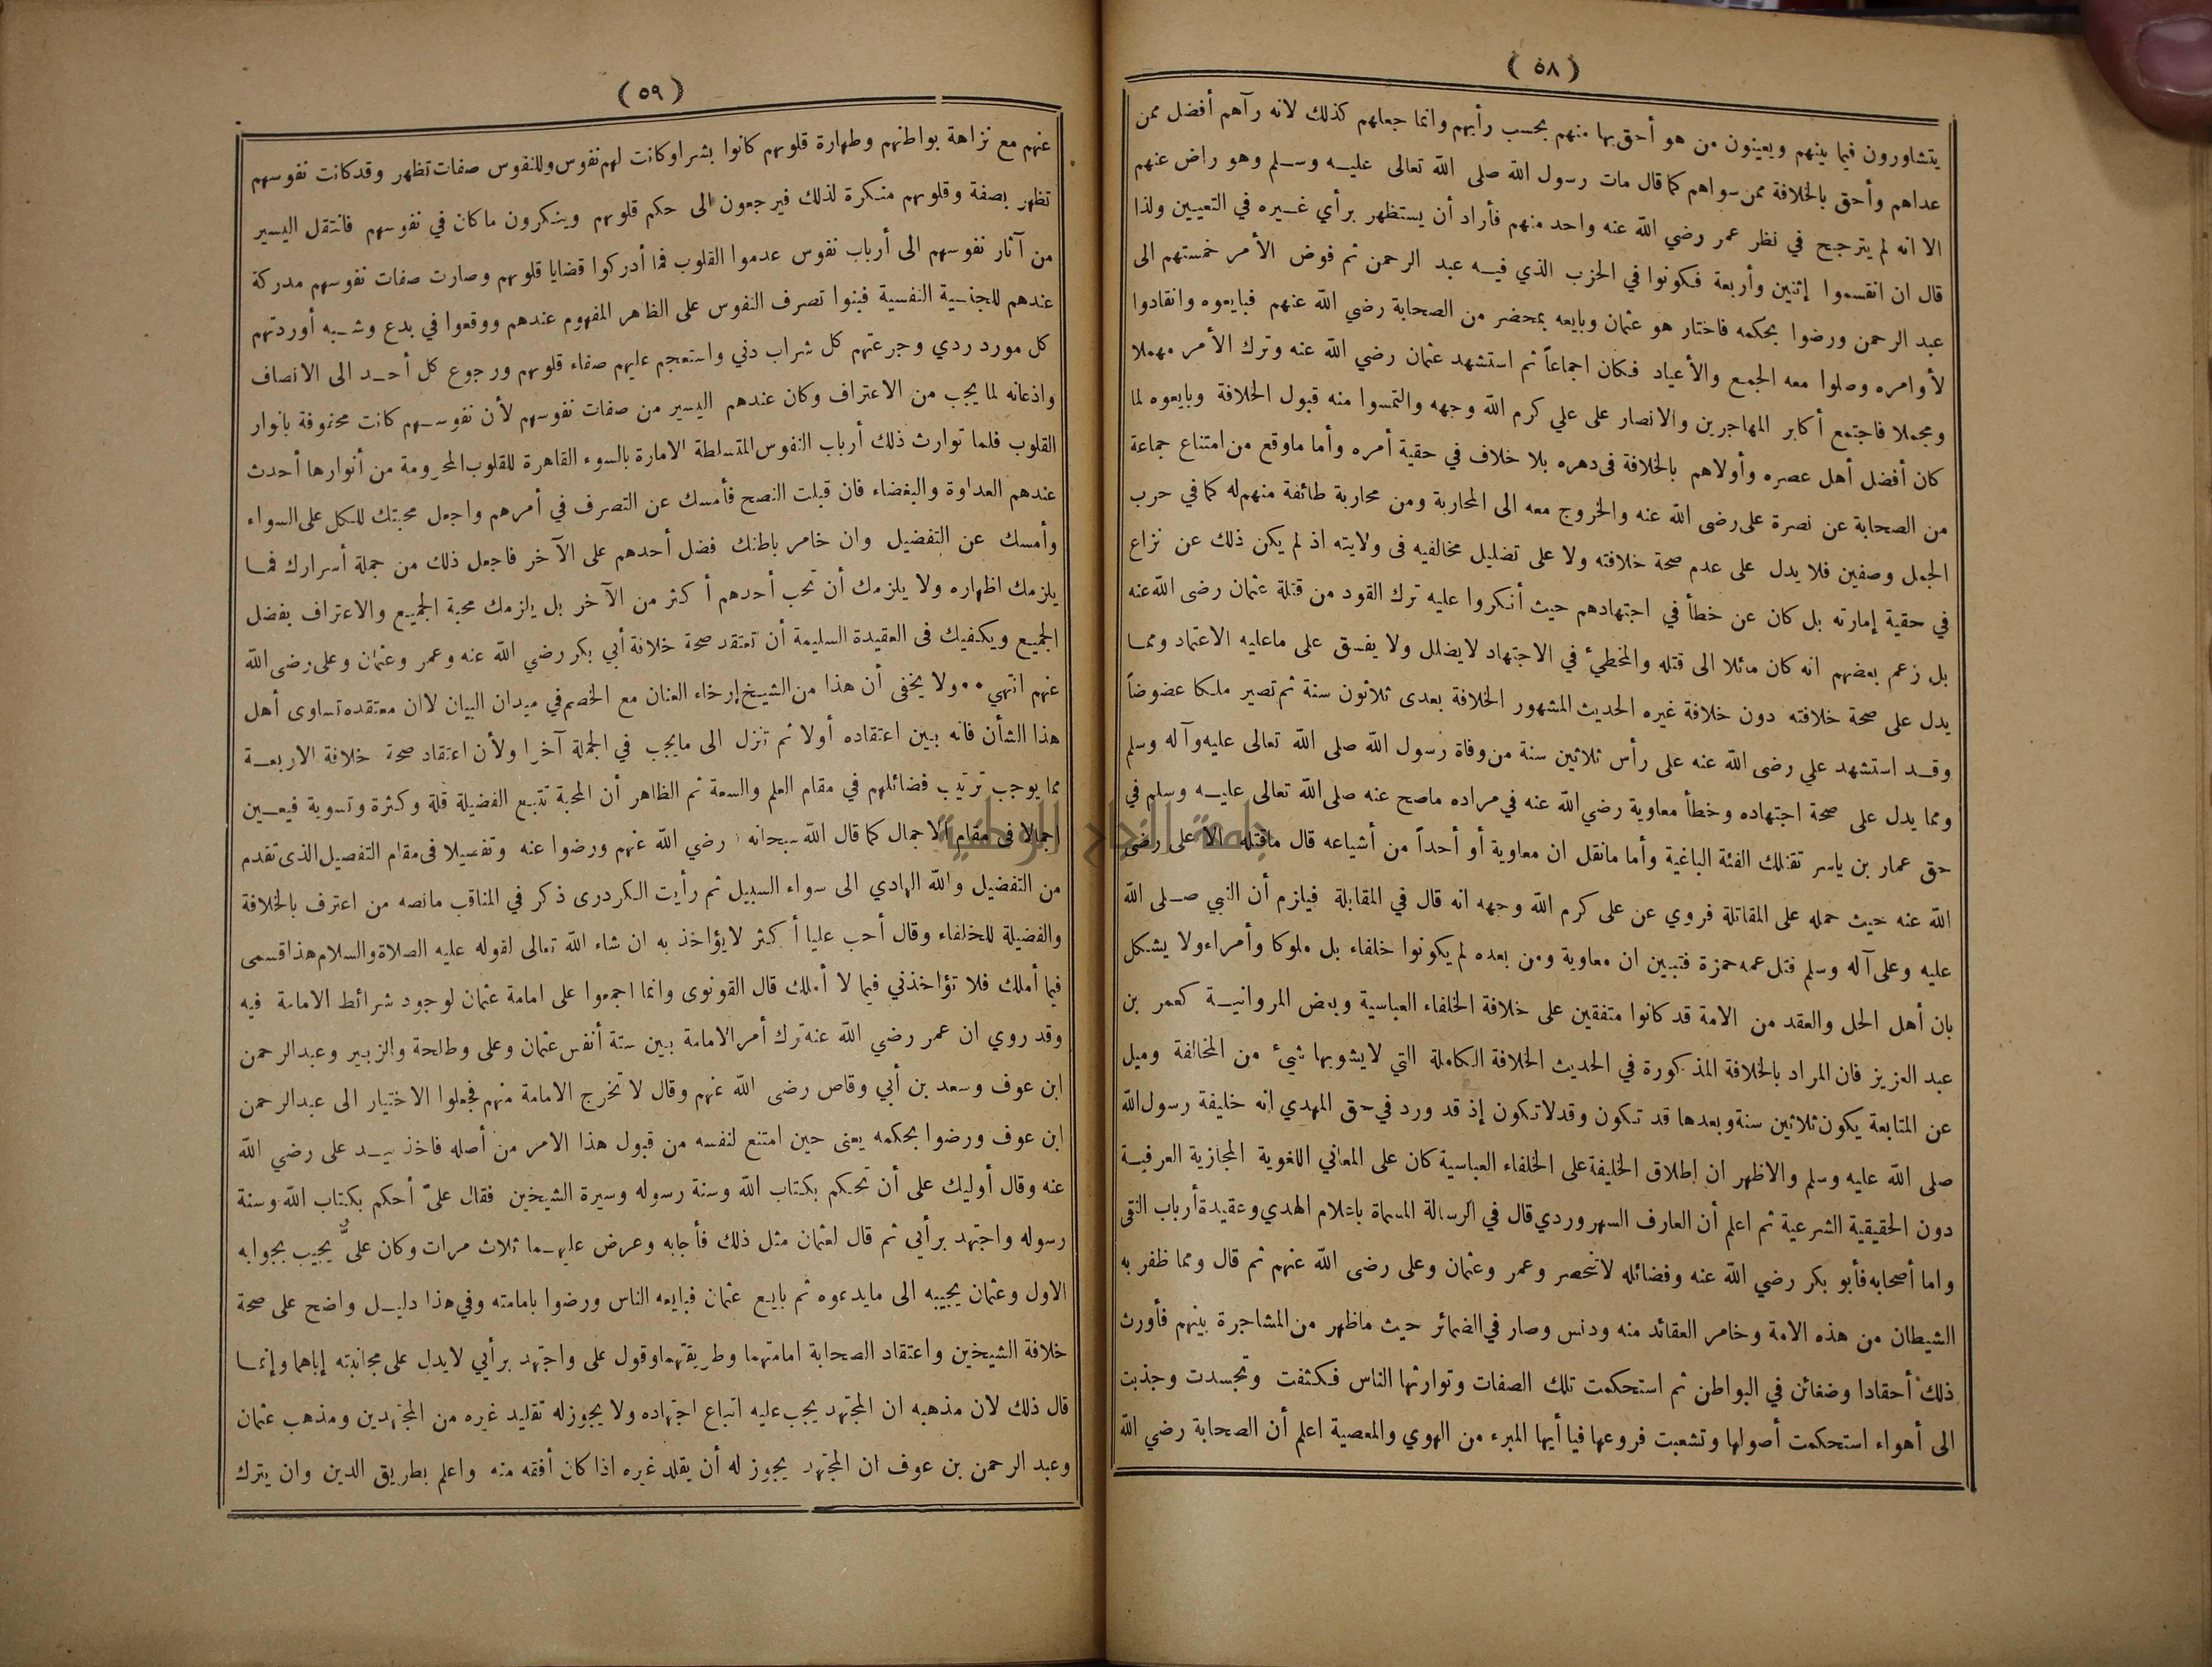 (٥٨)
يتشاورون فيما بينهم ويعينون من هو أحق بها منهم بحسب رأيهم وانما جعلهم كذلك لانه رآهم أفضل ممن
عداهم وأحق بالخلافة ممن سواهم كما قال مات رسول الله صلى الله تعالى عليه وسلم وهو راض عنهم
الا انه لم يترجح في نظر عمر رضي الله عنه واحد منهم فأراد أن يستظهر برأي غيره في التعيين ولذا
قال ان انقسموا إثنين وأربعة فكونوا في الحزب الذي فيه عبد الرحمن ثم فوض الأمر خمستهم الى
عبد الرحمن ورضوا بحكمه فاختار هو عثمان وبايعه بمحضر من الصحابة رضي الله عنهم فبايعوه وانقادوا
لأوامره وصلوا معه الجمع والأعياد فكان اجماعاً ثم استشهد عثمان رضي الله عنه وترك الأمر مهملا
ومجملا فاجتمع أكابر المهاجرين والانصار على علي كرم الله وجهه والتمسوا منه قبول الخلافة وبايعوه لما
كان أفضل أهل عصره وأولاهم بالخلافة فى دهره بلا خلاف في حقية أمره وأما ماوقع من امتناع جماعة
من الصحابة عن نصرة على رضى الله عنه والخروج معه الى المحاربة ومن محاربة طائفة منهم له كما في حرب
الجمل وصفين فلا يدل على عدم صحة خلافته ولا على تضليل مخالفيه فى ولايته اذ لم يكن ذلك عن نزاع
في حقية إمارته بل كان عن خطأ في اجتهادهم حيث أنكروا عليه ترك القود من قتلة عثمان رضى الله عنه
بل زعم بعضهم انه كان مائلا الى قتله والمخطيء في الاجتهاد لايضلل ولا يفسق على ماعليه الاعتماد ومما
يدل على صحة خلافته دون خلافة غيره الحديث المشهور الخلافة بعدى ثلاثون سنة ثم تصير ملكا عضوضاً
وقد استشهد علي رضى الله عنه على رأس ثلاثين سنة من وفاة رسول الله صلى الله تعالى عليه وآله وسلم
ومما يدل على صحة اجتهاده وخطأ معاوية رضي الله عنه في مراده ماصح عنه صلى الله تعالى عليه وسلم في
حق عمار بن ياسر تقتلك الفئة الباغية وأما مانقل ان معاوية أو أحداً من أشياعه قال ماقتله الا على رضى
الله عنه حيث حمله على المقاتلة فروي عن على كرم الله وجهه انه قال في المقابلة فيلزم أن النبي صلى الله
عليه وعلى آله وسلم قتل عمه حمزة فتبين ان معاوية ومن بعده لم يكونوا خلفاء بل ملوكا وأمراء ولا يشكل
بان أهل الحل والعقد من الامة قد كانوا متفقين على خلافة الخلفاء العباسية وبعض المروانية كعمر بن
عبد العزيز فان المراد بالخلافة المذكورة في الحديث الخلافة الكاملة التي لايشوبها شيء من المخالفة وميل
عن المتابعة يكون ثلاثين سنة وبعدها قد تكون وقد لاتكون إذ قد ورد في حق المهدي انه خليفة رسول الله
صلى الله عليه وسلم والاظهر ان إطلاق الخليفة على الخلفاء العباسية كان على المعاني اللغوية المجازية العرفية
دون الحقيقية الشرعية ثم اعلم أن العارف السهروردي قال في الرسالة المسماة باعلام الهدي وعقيدة أرباب التقى
واما أصحابه فأبو بكر رضي الله عنه وفضائله لاتنحصر وعمر وعثمان وعلى رضى الله عنهم ثم قال ومما ظفر به
الشيطان من هذه الامة وخامر العقائد منه ودنس وصار في الضمائر حيث ماظهر من المشاجرة بينهم فأورث
ذلك أحقادا وضغائن في البواطن ثم استحكمت تلك الصفات وتوارثها الناس فكثفت وتجسدت وجذبت
الى أهواء استحكمت أصولها وتشعبت فروعها فيا أيها المبرء من الهوي والمعصية اعلم أن الصحابة رضي الله
(٥٩)
عنهم مع نزاهة بواطنهم وطهارة قلوبهم كانوا بشرا وكانت لهم نفوس وللنفوس صفات تظهر وقد كانت نفوسهم
تظهر بصفة وقلوبهم منكرة لذلك فيرجعون الى حكم قلوبهم وينكرون ما كان في نفوسهم فانتقل اليسير
من آثار نفوسهم الى أرباب نفوس عدموا القلوب فما أدركوا قضايا قلوبهم وصارت صفات نفوسهم مدركة
عندهم للجنسية النفسية فبنوا تصرف النفوس على الظاهر المفهوم عندهم ووقعوا في بدع وشبه أوردتهم
كل مورد ردي وجرعتهم كل شراب دني واستعجم عليهم صفاء قلوبهم ورجوع كل أحد الى الانصاف
واذعانه لما يجب من الاعتراف وكان عندهم اليسير من صفات نفوسهم لأن نفوسهم كانت محفوفة بانوار
القلوب فلما توارث ذلك أرباب النفوس المتسلطة الامارة بالسوء القاهرة للقلوب المحرومة من أنوارها أحدث
عندهم العداوة والبغضاء فان قبلت النصح فأمسك عن التصرف في أمرهم واجعل محبتك للكل على السواء
وأمسك عن التفضيل وان خامر باطنك فضل أحدهم على الآخر فاجعل ذلك من جملة أسرارك فما
يلزمك اظهاره ولا يلزمك أن تحب أحدهم أكثر من الآخر بل يلزمك محبة الجميع والاعتراف بفضل
الجميع ويكفيك فى العقيدة السليمة أن تعتقد صحة خلافة أبي بكر رضي الله عنه وعمر وعثمان وعلى رضى الله
عنهم انتهي ٠٠ ولا يخفى أن هذا من الشيخ إرخاء العنان مع الخصم في ميدان البيان لاان معتقده تساوى أهل
هذا الشأن فانه بين اعتقاده أولا ثم تنزل الى مايجب في الجملة آخرا ولأن اعتقاد صحة خلافة الاربعة
مما يوجب ترتيب فضائلهم في مقام العلم والسعة ثم الظاهر أن المحبة تتبع الفضيلة قلة وكثرة وتسوية فيعين
اجمالا فى مقام الاجمال كما قال الله سبحانه رضي الله عنهم ورضوا عنه وتفصيلا فى مقام التفصيل الذى تقدم
من التفضيل والله الهادي الى سواء السبيل ثم رأيت الكردرى ذكر في المناقب مانصه من اعترف بالخلافة
والفضيلة للخلفاء وقال أحب عليا أكثر لايؤاخذ به ان شاء الله تعالى لقوله عليه الصلاة والسلام هذا قسمى
فيما أملك فلا تؤاخذني فيما لا أملك قال القونوى وانما اجمعوا على امامة عثمان لوجود شرائط الامامة فيه
وقد روي ان عمر رضي الله عنه ترك أمر الامامة بين ستة أنفس عثمان وعلى وطلحة والزبير وعبد الرحمن
ابن عوف وسعد بن أبي وقاص رضى الله عنهم وقال لا تخرج الامامة منهم فجعلوا الاختيار الى عبد الرحمن
ابن عوف ورضوا بحكمه يعنى حين امتنع لنفسه من قبول هذا الامر من أصله فاخذ بيد على رضي الله
عنه وقال أوليك على أن تحكم بكتاب الله وسنة رسوله وسيرة الشيخين فقال علىّ أحكم بكتاب الله وسنة
رسوله واجتهد برأيي ثم قال لعثمان مثل ذلك فأجابه وعرض عليهما ثلاث مرات وكان علىٌّ يجيب بجوابه
الاول وعثمان يجيبه الى مايدعوه ثم بايع عثمان فبايعه الناس ورضوا بامامته وفي هذا دليل واضح على صحة
خلافة الشيخين واعتقاد الصحابة امامتهما وطريقتهما وقول على واجتهد برأيي لايدل على مجانبته إياهما وإنما
قال ذلك لان مذهبه ان المجتهد يجب عليه اتباع اجتهاده ولا يجوز له تقليد غيره من المجتهدين ومذهب عثمان
وعبد الرحمن بن عوف ان المجتهد يجوز له أن يقلد غيره اذا كان أفقه منه واعلم بطريق الدين وان يترك
جامعة النجاح الوطنية